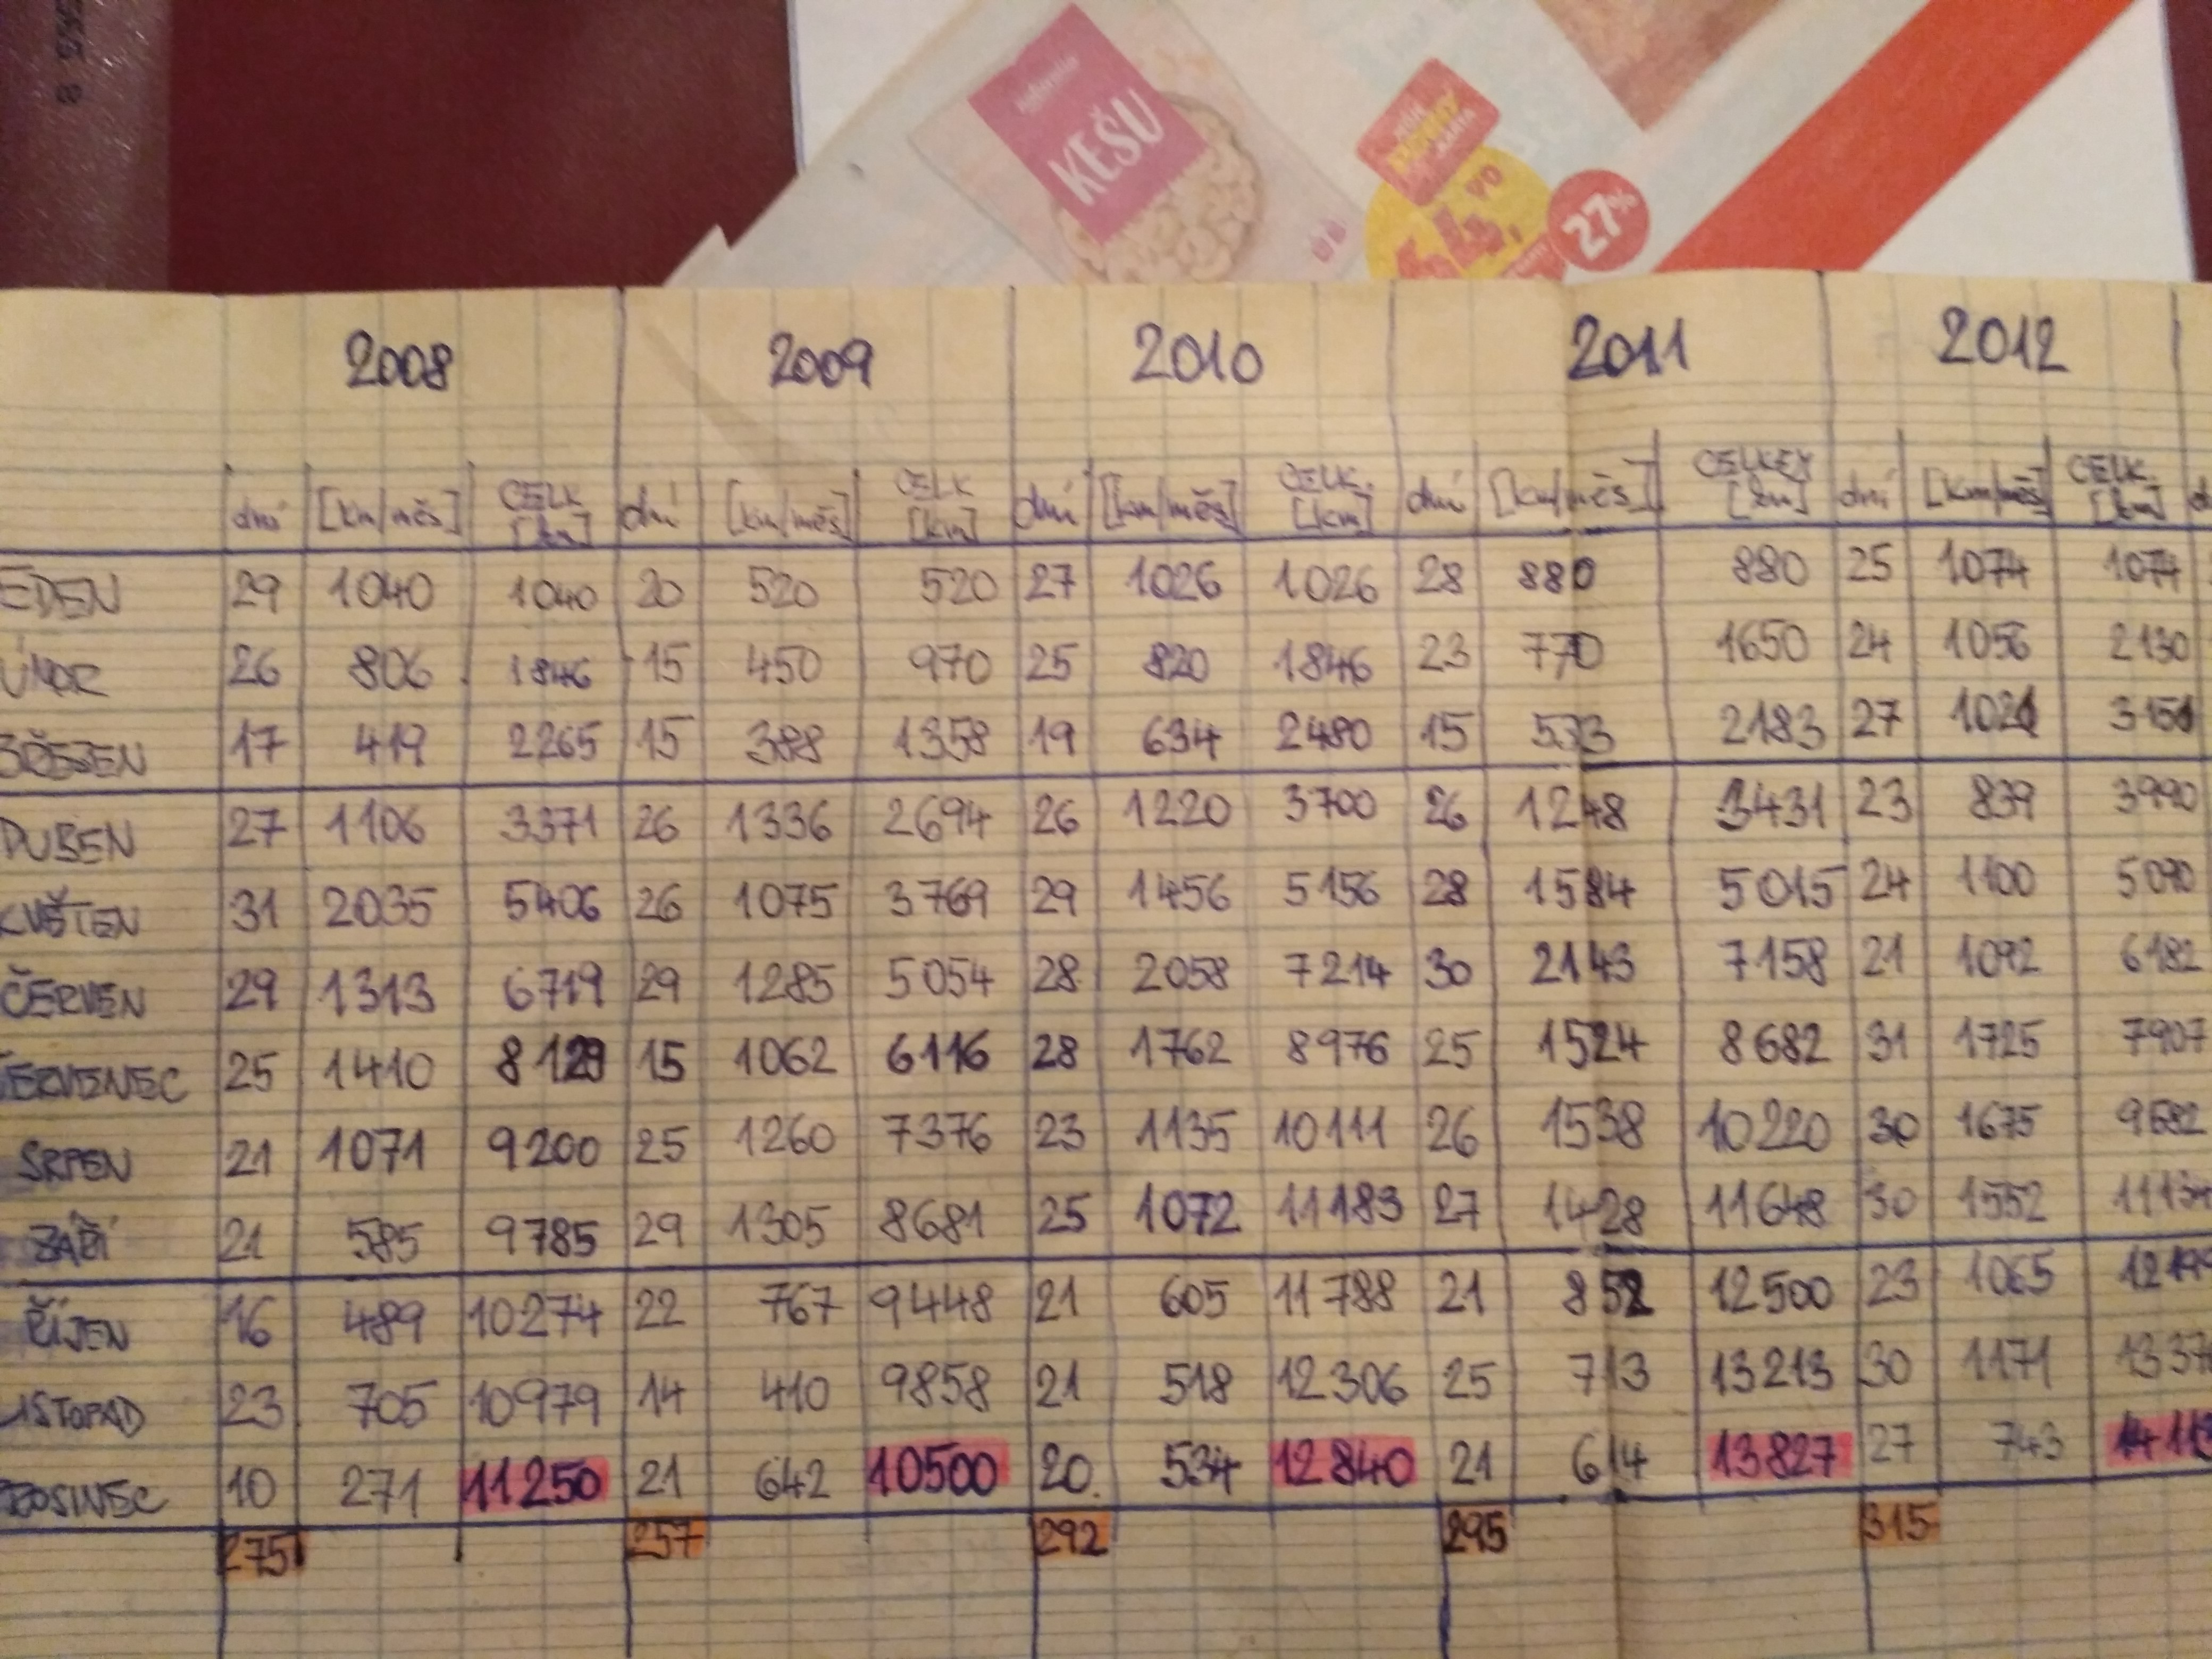 KEŠU
27%
2008 2009 2010 2011 2012
dní [km/měs] CELK [km] dní [km/měs] CELK [km] dní [km/měs] CELK. [km] dní [km/měs] CELKEM [km] dní [km/měs] CELK. [km]
EDEN 29 1040 1040 20 520 520 27 1026 1026 28 880 880 25 1074 1074
ÚNOR 26 806 1846 15 450 970 25 820 1846 23 770 1650 24 1056 2130
BŘEZEN 17 419 2265 15 388 1358 19 634 2480 15 533 2183 27 1021 3151
DUBEN 27 1106 3371 26 1336 2694 26 1220 3700 26 1248 3431 23 839 3990
KVĚTEN 31 2035 5406 26 1075 3769 29 1456 5156 28 1584 5015 24 1100 5090
ČERVEN 29 1313 6719 29 1285 5054 28 2058 7214 30 2143 7158 21 1092 6182
ERVENEC 25 1410 8129 15 1062 6116 28 1762 8976 25 1524 8682 31 1725 7907
SRPEN 21 1071 9200 25 1260 7376 23 1135 10111 26 1538 10220 30 1675 9582
ZÁŘÍ 21 585 9785 29 1305 8681 25 1072 11183 27 1428 11648 30 1552 1113
ŘÍJEN 16 489 10274 22 767 9448 21 605 11788 21 852 12500 23 1065 1219
LISTOPAD 23 705 10979 14 410 9858 21 518 12306 25 713 13213 30 1171 1337
ROSINEC 10 271 11250 21 642 10500 20. 534 12840 21 614 13827 27 743 1411
275 257 292 295 315